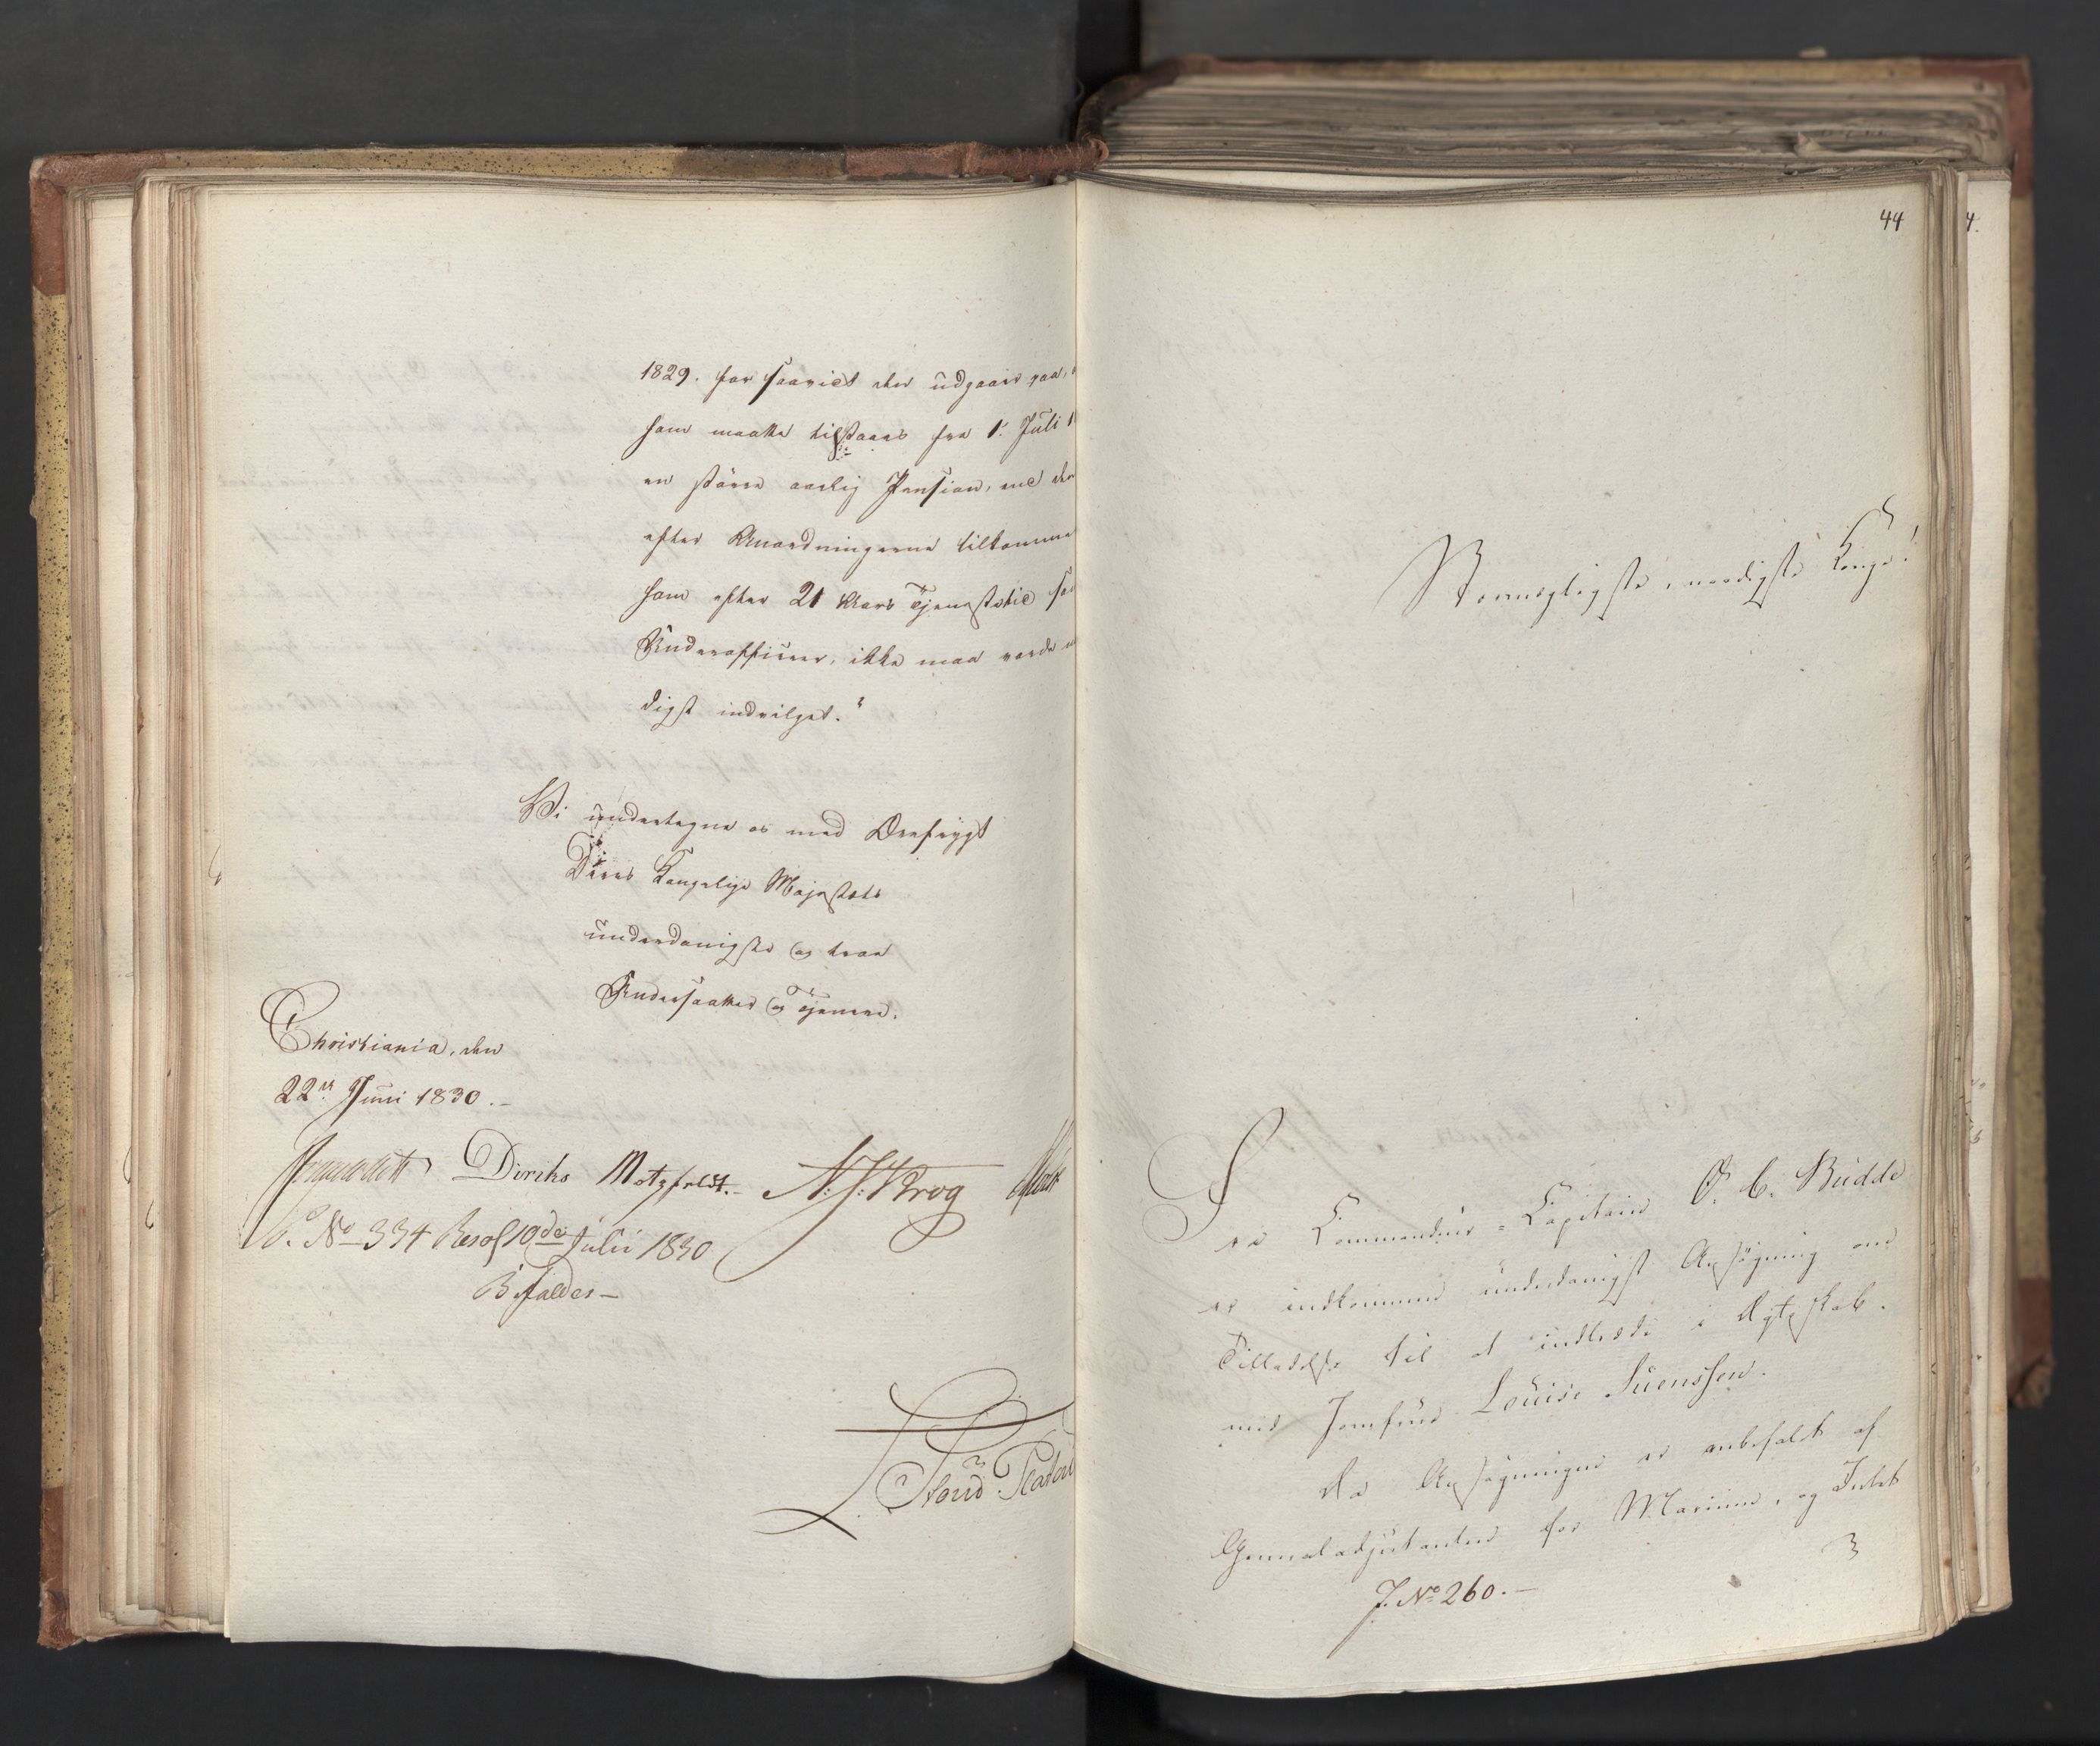 1829. for saavidt der udgaar paa,
ham maatte tilstaaes fra 1. Juli 1
en större aarlig Pension, end den
efter Anordningerne tilkomme
ham efter 21 Aars Tjenestetid som
Underofficeer, ikke maa vorde n
digst indvilget."
Vi undertegne os med Ærefrygt
Deres Kongelige Majestæts
underdanigste og troe
Undersaatter og Tjenere.
Christiania, den
22de Juni 1830.-
Diriks Motzfeldt.- N: J: Krog
P. No 334 Resol 10de Julii 1830
Bifaldes-
44
Stormægtigste, naadigste Konge!
Fra Commandeur-Capitain O. C. Budde
er indkommen underdanigst Ansögning om
Tilladelse til at indtræde i Ægteskab
med Jomfrue Louise Suenssen.
Da Ansögningen er anbefalet af
Generaladjutanten for Marinen, og Intet
J. No 260.-